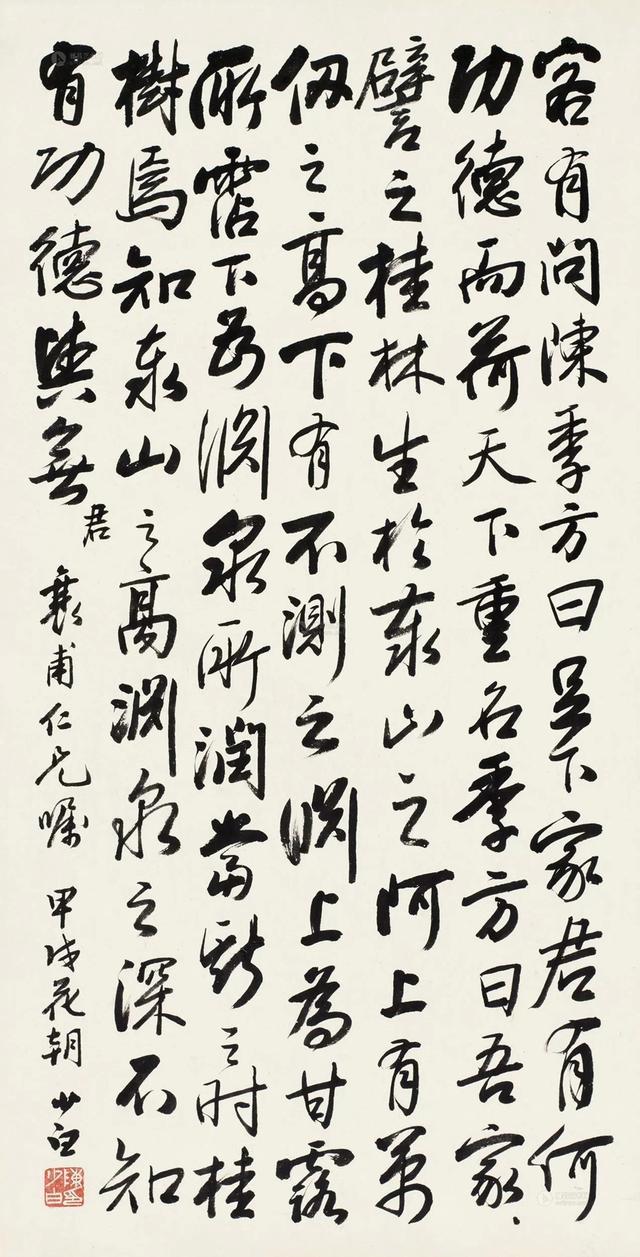 客有問陳季方曰足下家君有何
功德而荷天下重名季方曰吾家、
譬之桂林生於泰山之阿上有萬
仞之高下有不測之淵上為甘露
所霑下為淵泉所潤當斯之時桂
樹焉知泰山之高淵泉之深不知
有功德與無
君
甫仁兄囑 甲戌花朝 少白